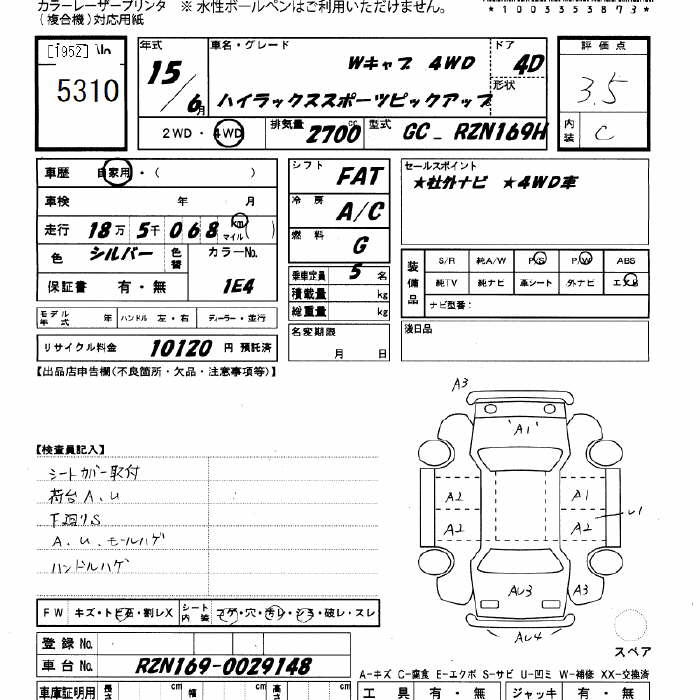 カラーレーザープリンタ ※ 水性ボールペンはご利用いただけません。
(複合機)対応用紙
*1003353873*
[1952]
5310
年式 車名・グレード ドア 評価点
15/6月 Wキャブ 4WD 4D 3.5
形状
ハイラックススポーツピックアップ
2WD・4WD 排気量 2700 cc 型式 GC_ RZN169H 内装 C
車歴 自家用・( )
車検 年 月
走行 18万 5千 068 km マイル ( )
色 シルバー 色替 カラーNo.
保証書 有・無 1E4
モデル年式 年 ハンドル 左・右 ディーラー・並行
リサイクル料金 10120 円 預託済
シフト FAT
冷房 A/C
燃料 G
乗車定員 5 名
積載量 kg
総重量 kg
名変期限
月 日
セールスポイント
★社外ナビ ★4WD車
装備品 S/R 純A/W P/S P/W ABS
純TV 純ナビ 革シート 外ナビ エアB
ナビ型番:
後日品
【出品店申告欄(不良箇所・欠品・注意事項等)】
【検査員記入】
シートカバー取付
荷台A、U
下廻りS
A、U、モールハゲ
ハンドルハゲ
A3
A1
A2 A1
A2 A2 U1
AU3 A3
AU4
スペア
FW キズ・トビ石・割レX シート内装 コゲ・穴・汚レ・シミ・破レ・スレ
登録No.
車台No. RZN169-0029148
A-キズ C-腐食 E-エクボ S-サビ U-凹ミ W-補修 XX-交換済
車庫証明用 長さ cm 幅 cm 高さ cm 工具 有・無 ジャッキ 有・無